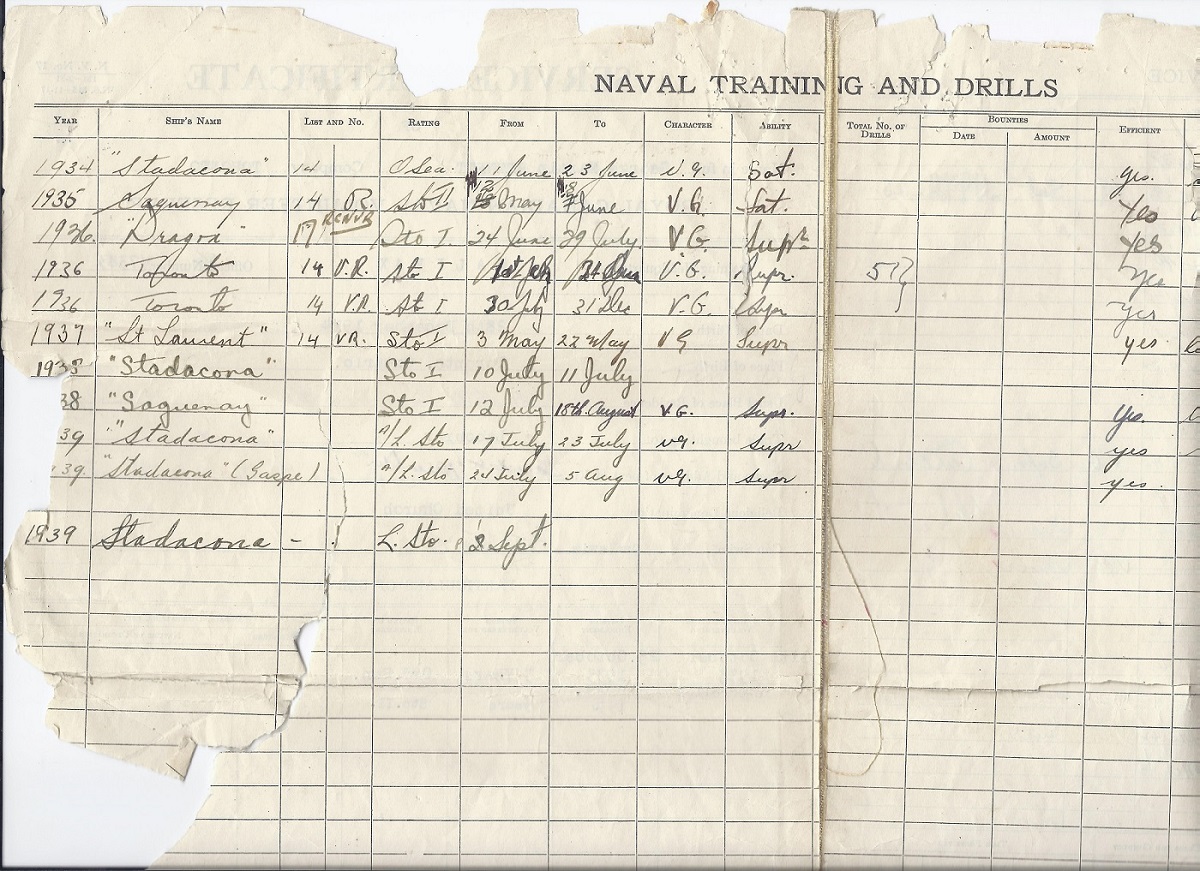 NAVAL TRAINING AND DRILLS
YEAR SHIP'S NAME LIST AND NO. RATING FROM TO CHARACTER ABILITY TOTAL NO. OF DRILLS BOUNTIES DATE AMOUNT EFFICIENT
1934 "Stadacona" 14 O Sea. 11 June 23 June V.G. Sat. yes.
1935 Saguenay 14 Sto I May June V.G. Sat. Yes
1936. "Dragon" 17 RCNVR Sto I. 24 June 29 July V.G. Supr Yes
1936 Toronto 14 V.R. Sto I V.G. Supr. Yes
1936 Toronto 14 V.R. Sto I 30 July 31 Dec V.G. Supr Yes
1937 "St Laurent" 14 VR. Sto I 3 May 22 May VG Supr yes.
1938 "Stadacona" Sto I 10 July 11 July
38 "Saguenay" Sto I 12 July 18th August V.G. Supr. yes.
39 "Stadacona" A/L. Sto 17 July 23 July VG. Supr yes
39. "Stadacona" (Gaspe) A/L. Sto 24 July 5 Aug VG. Supr yes.
1939 Stadacona - L. Sto. Sept.